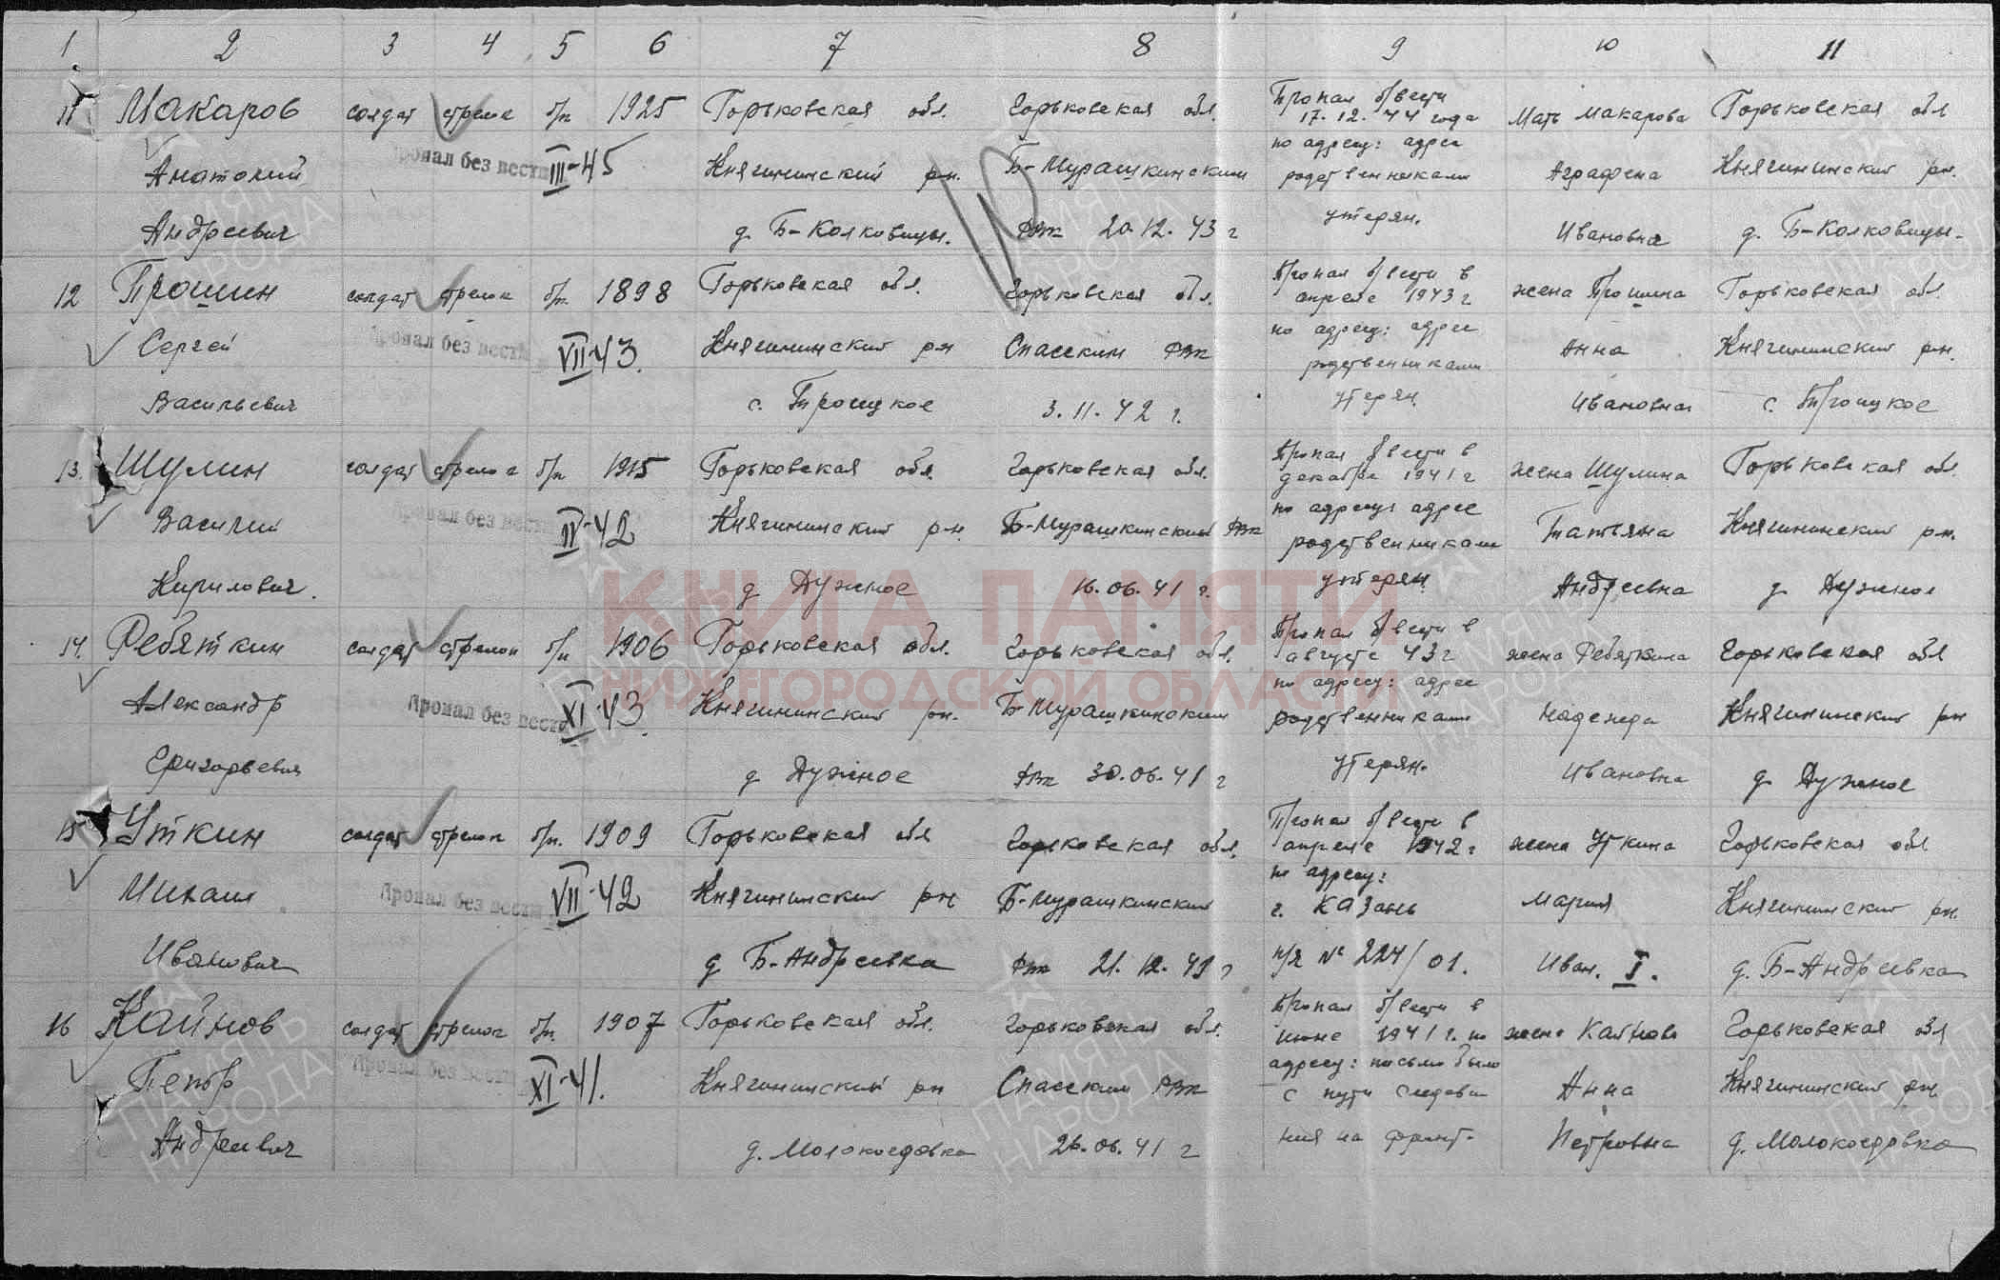 1 2 3 4 5 6 7 8 9 10 11
11 Макаров солдат стрелок б/п 1925 Горьковская обл. Горьковская обл. Пропал б/вести Мать Макарова Горьковская обл
17.12.44 года
Пропал без вести III-45
Анатолий Княгининский рн. Б-Мурашкинским по адресу: адрес Аграфена Княгининский рн.
родственниками
Андреевич д. Б-Колковицы. РВК 20.12.43 г утерян. Ивановна д. Б-Колковицы.
12 Прошин солдат стрелок б/п. 1898 Горьковская обл. Горьковская обл. Пропал б/вести в жена Прошина Горьковская обл.
апреле 1943 г
Пропал без вести VII-43.
Сергей Княгининский рн Спасским РВК по адресу: адрес Анна Княгининский рн.
родственниками
Васильевич с. Троицкое 3.11.42 г. утерян Ивановна с. Троицкое
13. Шулин солдат стрелок б/п 1915 Горьковская обл. Горьковская обл. Пропал б/вести в жена Шулина Горьковская обл.
декабре 1941 г
Пропал без вести II-42
Василий Княгининский рн. Б-Мурашкинский РВК по адресу: адрес Татьяна Княгининский рн.
родственниками
Кирилович. д Дужное 16.06.41 г. утерян Андреевна д Дужное
КНИГА ПАМЯТИ
НИЖЕГОРОДСКОЙ ОБЛАСТИ
14. Ребяткин солдат стрелок б/п 1906 Горьковская обл. Горьковская обл. Пропал б/вести в жена Ребяткина Горьковская обл
августе 43 г
Пропал без вести XI-43
Александр Княгининский рн. Б-Мурашкинским по адресу: адрес Надежда Княгининский рн
родственниками
Григорьевич д Дужное РВК 30.06.41 г утерян. Ивановна д Дужное
15 Уткин солдат стрелок б/п. 1909 Горьковская обл Горьковская обл. Пропал б/вести в жена Уткина Горьковская обл
апреле 1942 г
Пропал без вести VII-42
Михаил Княгининский рн Б-Мурашкинский по адресу: Мария Княгининский рн.
г. Казань
Иванович д Б-Андреевка РВК п/я № 224/01. Иван. I. д. Б-Андреевка
16 Каинов солдат стрелок б/п. 1907 Горьковская обл. Горьковская обл. Пропал б/вести в жена Каинова Горьковская обл
июне 1941 г. по
Пропал без вести XI-41.
Петр Княгининский рн Спасским РВК адресу: письмо было Анна Княгининский рн.
с пути следова
Андреевич д. Молокоедовка 26.06.41 г ния на фронт. Петровна д. Молокоедовка
ПАМЯТЬ
НАРОДА